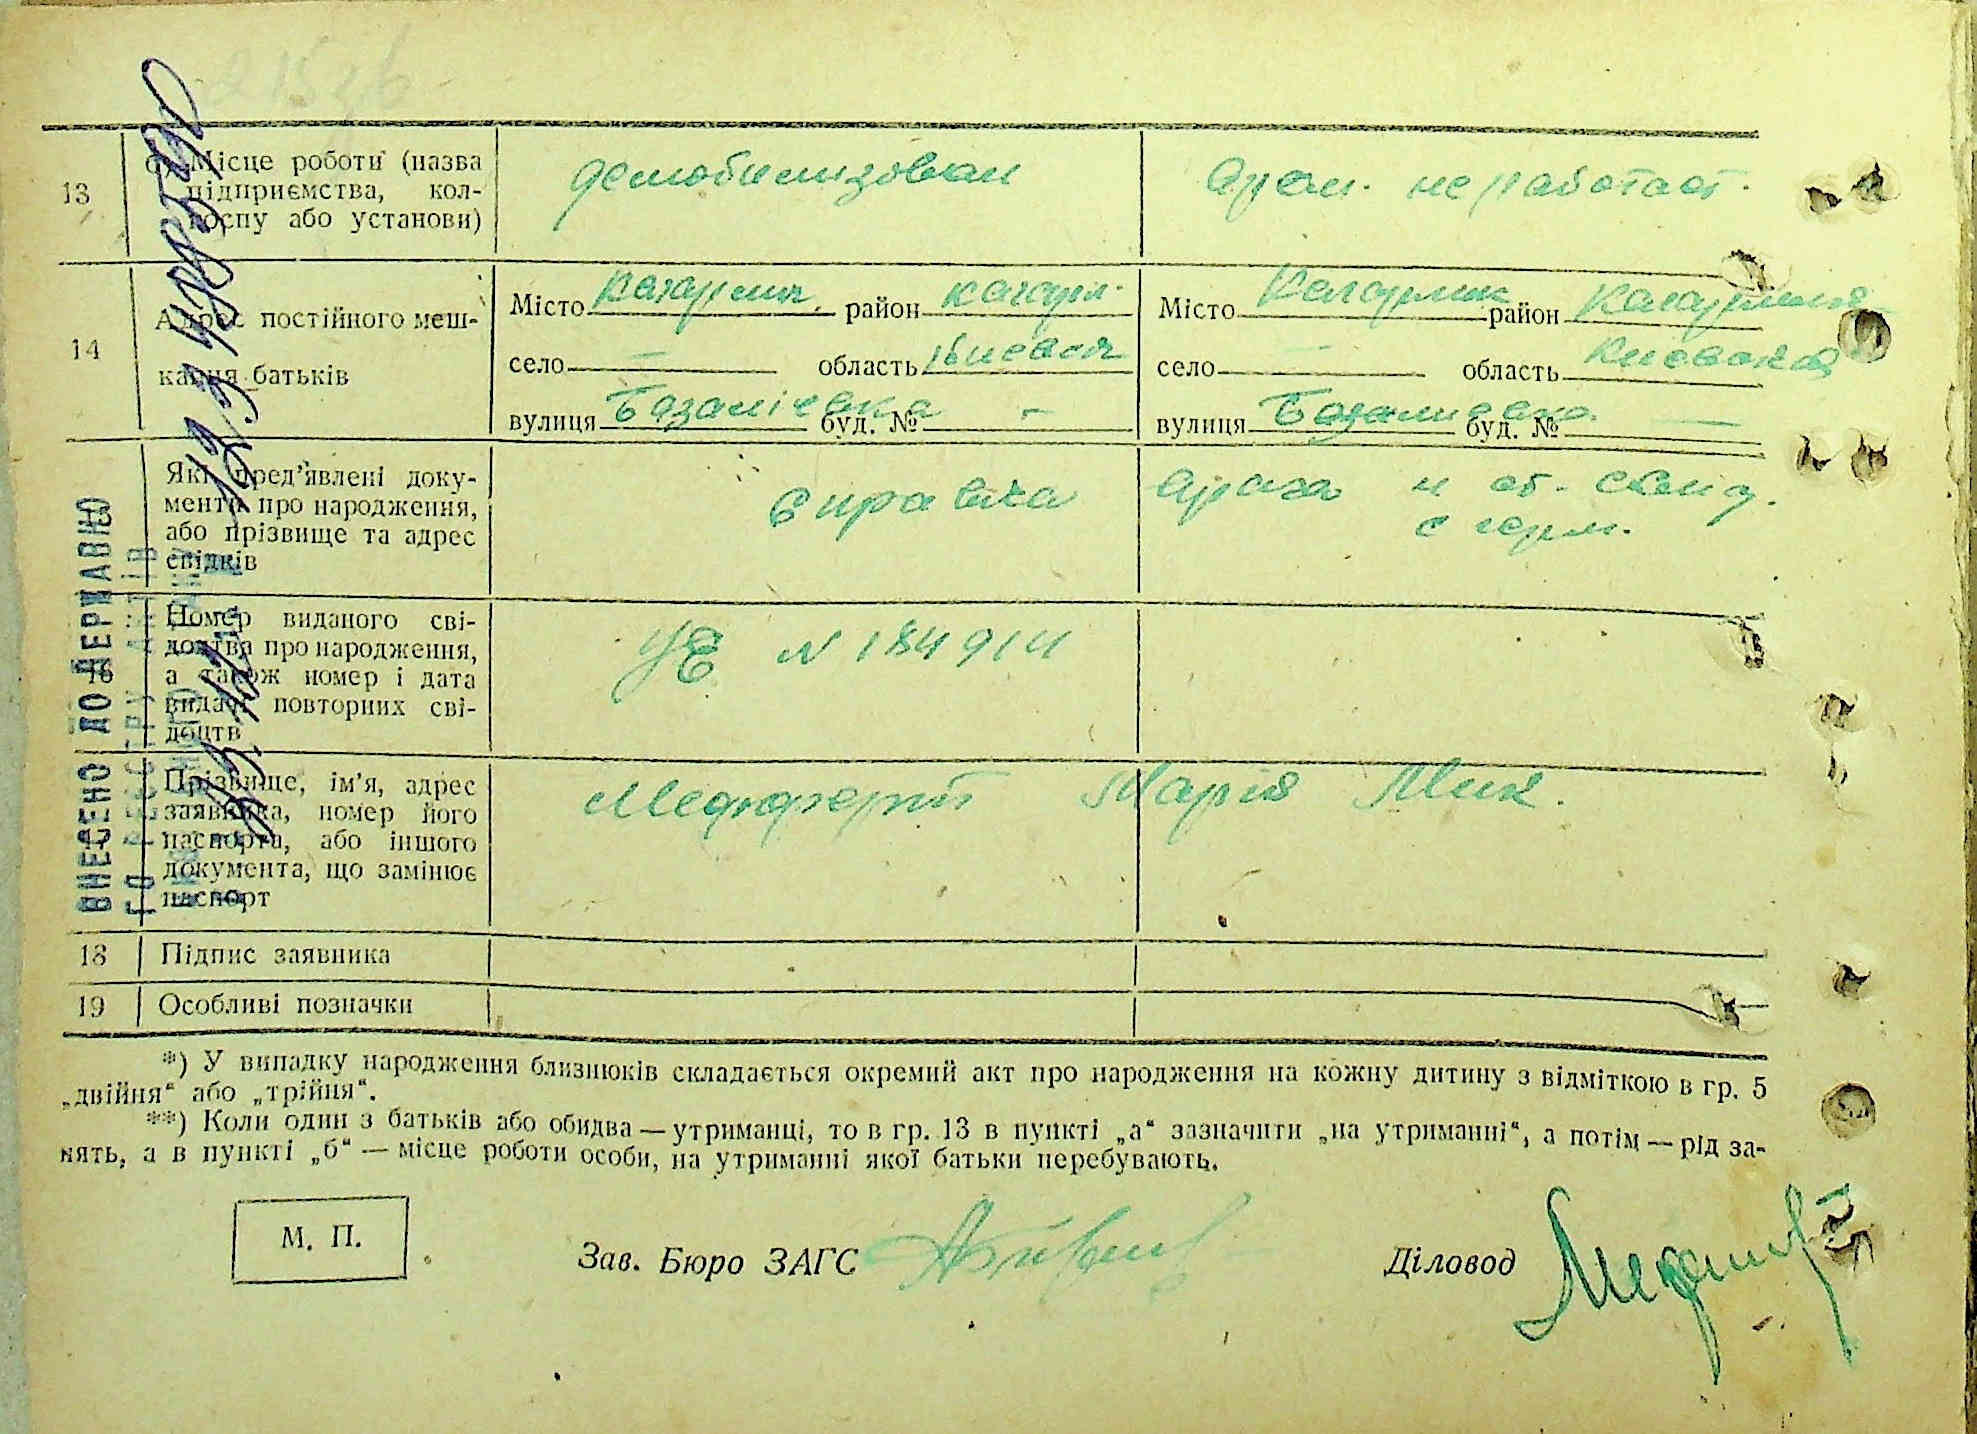 13 б) Місце роботи (назва
підприємства, кол-
госпу або установи)
демобилизован
врем. не работает.
14 Адрес постійного меш-
кання батьків
Місто Кагарлик район Кагарл.
село — область Киевск
вулиця буд. № —
Місто Кагарлик район Кагарлик
село — область Киевская
вулиця буд. № —
15 Які пред’явлені доку-
менти про народження,
або прізвище та адрес
свідків
справка
врача и об.
с
16 Номер виданого сві-
доцтва про народження,
а також номер і дата
видачі повторних сві-
доцтв
УЕ N 184914
17 Прізвище, ім’я, адрес
заявника, номер його
паспорта, або іншого
документа, що замінює
паспорт
Мария Мик.
18 Підпис заявника
19 Особливі позначки
ВНЕСЕНО ДО ДЕРЖАВНО
ГО РЕЄСТРУ АКТІВ
*) У випадку народження близнюків складається окремий акт про народження на кожну дитину з відміткою в гр. 5
„двійня“ або „трійня“.
**) Коли один з батьків або обидва — утриманці, то в гр. 13 в пункті „а“ зазначити „на утриманні“, а потім — рід за-
нять, а в пункті „б“ — місце роботи особи, на утриманні якої батьки перебувають.
М. П.
Зав. Бюро ЗАГС
Діловод